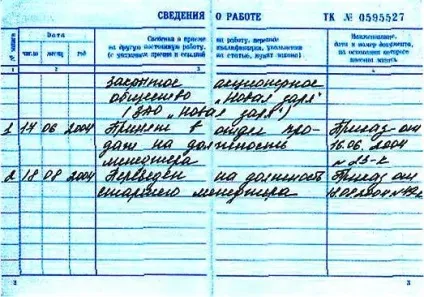 СВЕДЕНИЯ О РАБОТЕ ТК № 0595527
№ записи Дата Сведения о приеме на работу, переводе Наименование,
число месяц год на другую постоянную работу, квалификации, увольнении дата и номер документа,
(с указанием причин и ссылкой на статью, пункт закона) на основании которого внесена запись
1 2 3 4
акционерное
общество „Новая заря"
(ЗАО „Новая заря")
1 14 06 2004 Принят в отдел про- Приказ от
даж на должность 16.06.2004
менеджера № 23-к
2 18 08 2004 Переведен на должность Приказ от
старшего менеджера